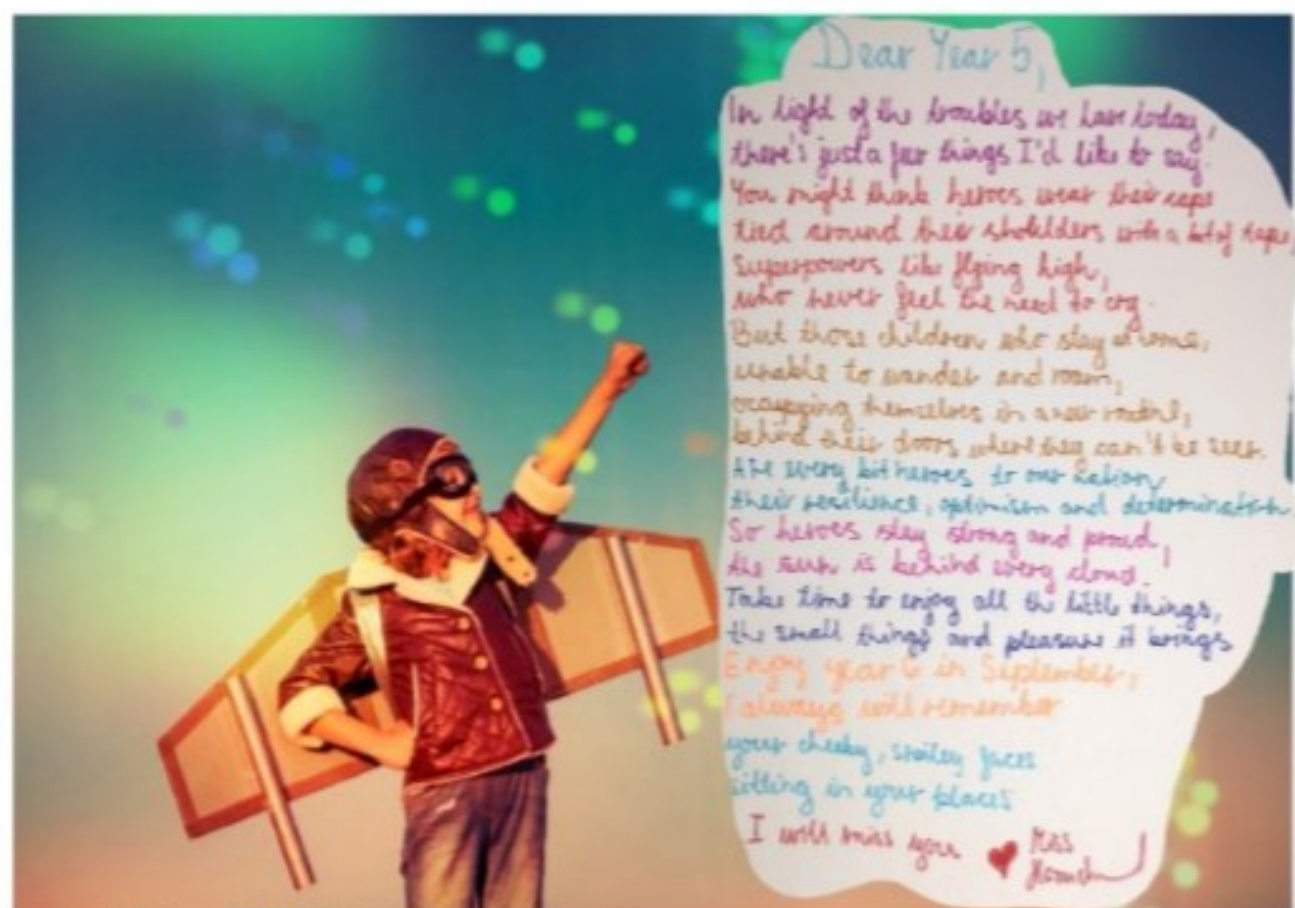 Dear Year 5,
In light of the troubles we have today,
there's just a few things I'd like to say.
You might think heroes wear their cape
tied around their sholdders with a bit of tape,
Superpowers like flying high,
who never feel the need to cry.
But those children who stay at home,
unable to wander and roam,
occupying themselves in a new routine,
behind their doors where they can't be seen.
Are every bit heroes to our nation,
their resilience, optimism and determination
So heroes stay strong and proud,
the sun is behind every cloud.
Take time to enjoy all the little things,
the small things and pleasure it brings
Enjoy year 6 in September,
I always will remember
your cheeky, smiley faces
sitting in your places
I will miss you Miss